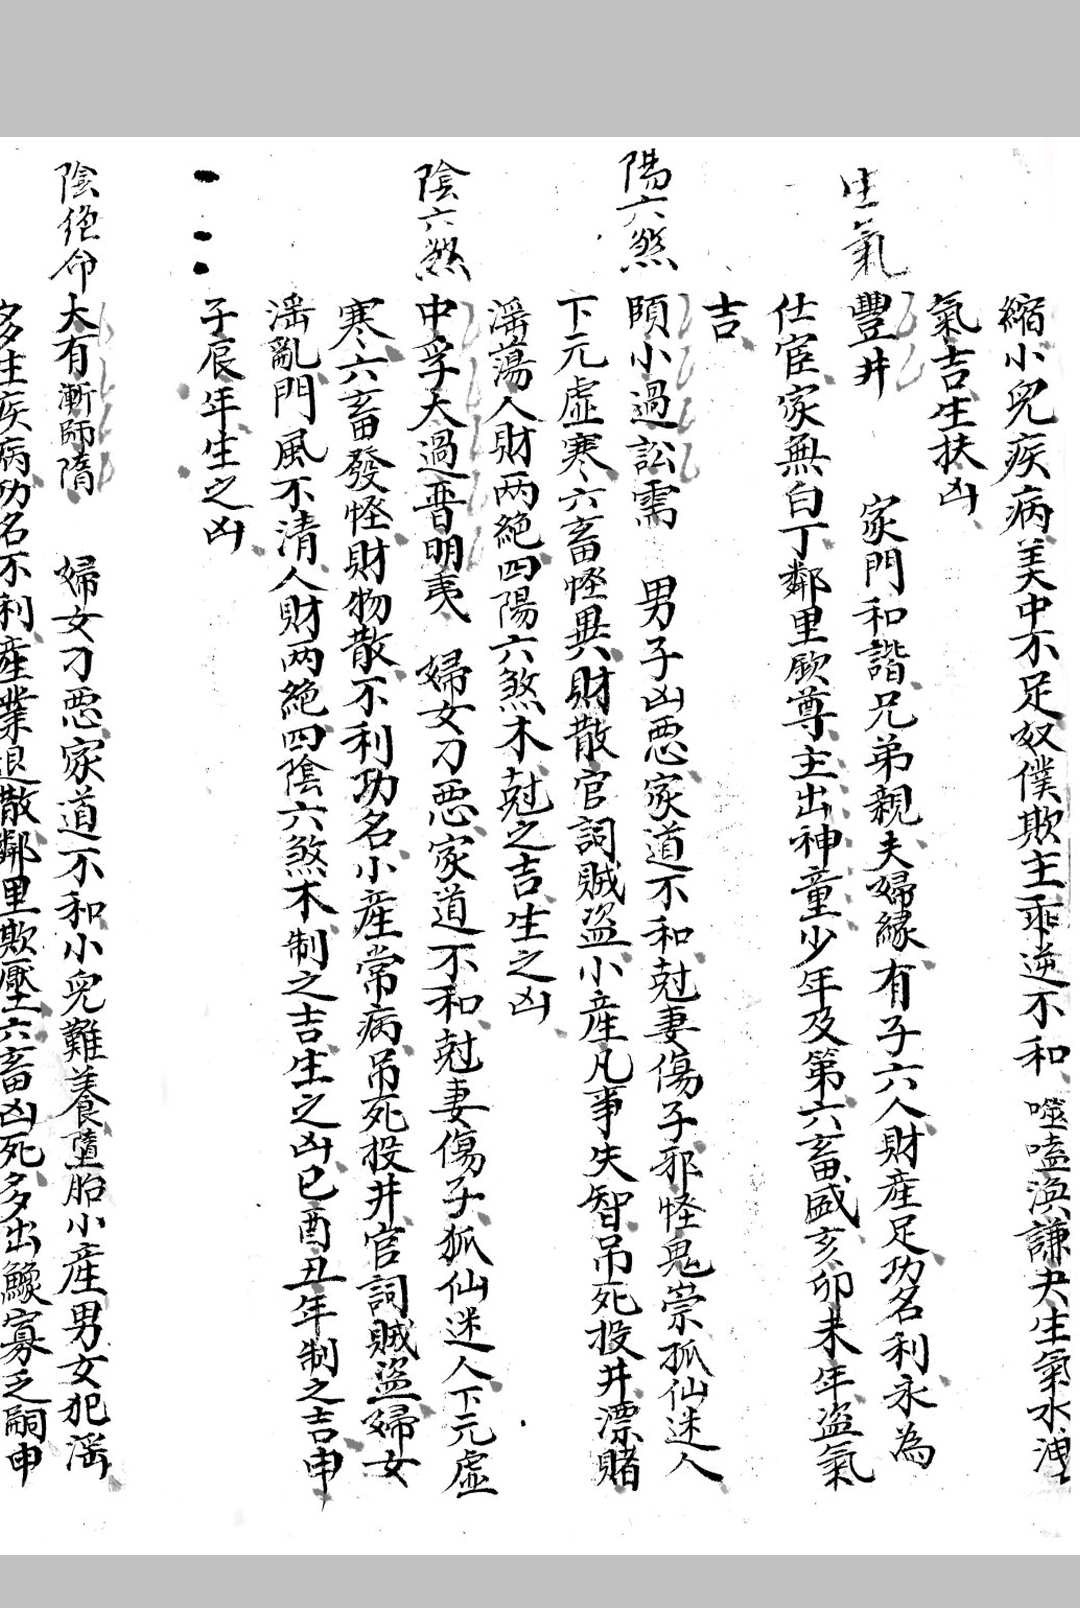 縮小兒疾病美中不足奴僕欺主乖逆不和 噬嗑渙謙夬生氣水洩
氣吉生扶凶
生氣 豐井 家門和諧兄弟親夫婦緣有子六人財産足功名利永為
仕宦家無白丁鄰里欽尊主出神童少年及第六畜盛亥卯未年盜氣
吉
陽六煞 頤小過訟需 男子凶惡家道不和尅妻傷子邪怪鬼祟狐仙迷人
下元虛寒六畜怪異財散官詞賊盜小産凡事失智吊死投井漂賭
滛蕩人財两絕四陽六煞木尅之吉生之凶
陰六煞 中孚大過晋明夷 婦女刁惡家道不和尅妻傷子狐仙迷人下元虛
寒六畜發怪財物散不利功名小産常病吊死投井官詞賊盜婦女
滛亂門風不清人財两絕四陰六煞木制之吉生之凶巳酉丑年制之吉申
子辰年生之凶
陰絕命 大有漸師隋 婦女刁惡家道不和小兒難養墮胎小産男女犯滛
多生疾病功名不利産業退散鄰里欺壓六畜凶死多出鰥寡乏嗣申